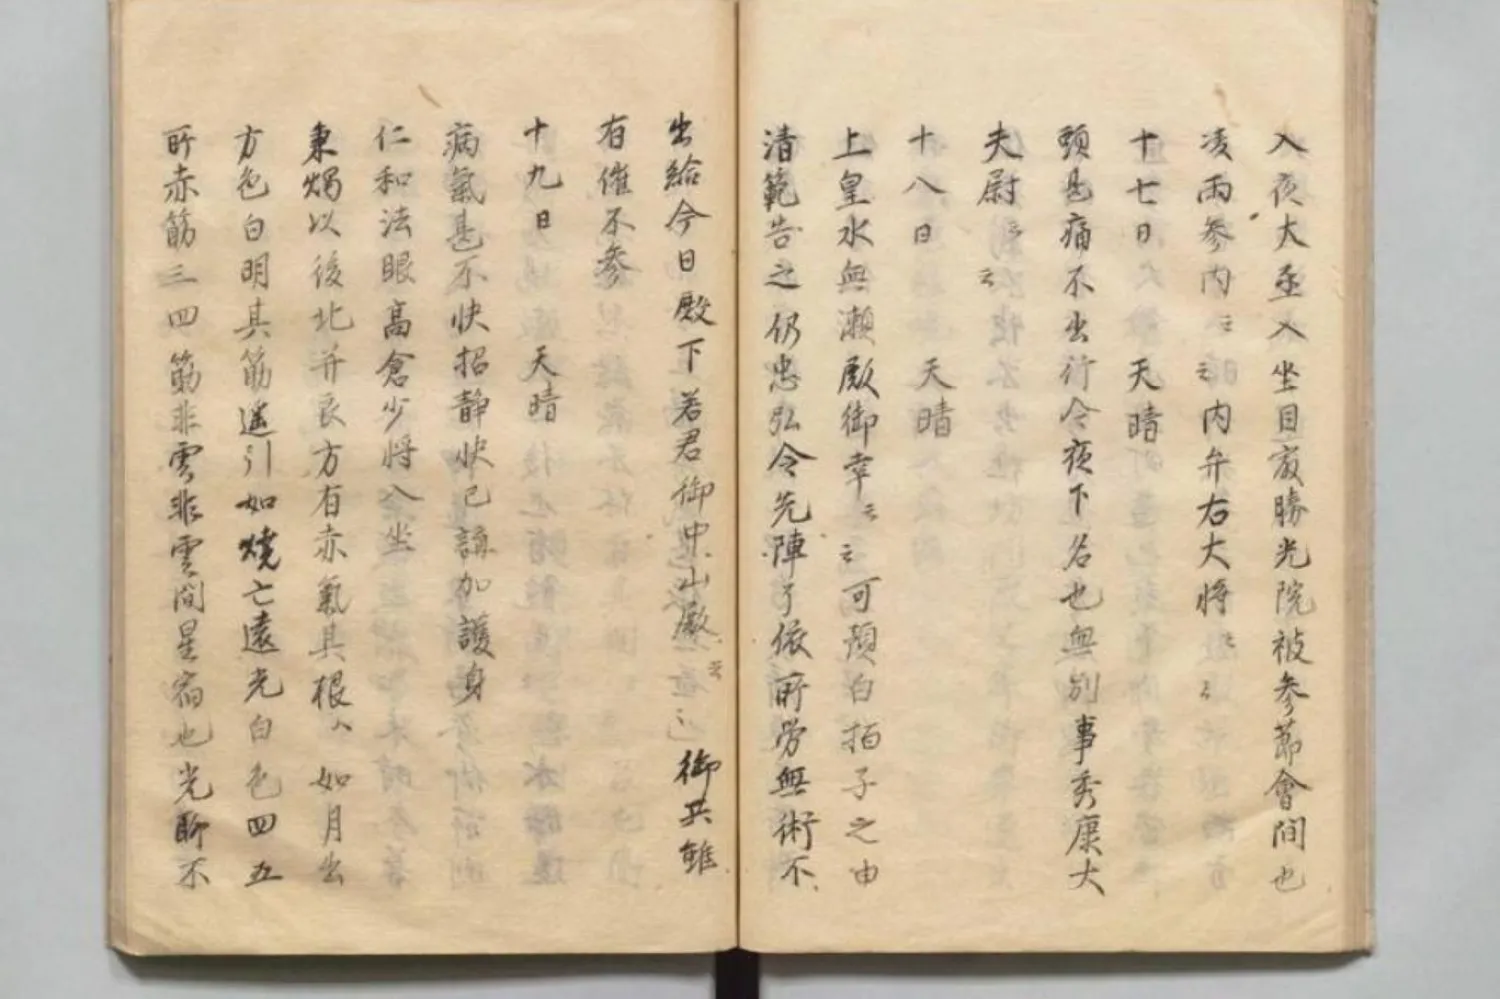 入夜大丞入坐目最勝光院被参節会間也
凌雨参内云々内弁右大将云々
十七日 天晴
頭甚痛不出行今夜下名也無別事秀康大
夫尉云々
十八日 天晴
上皇水無瀬殿御幸云々可預白拍子之由
清範告之仍忠弘令先陣了依所労無術不
出給今日殿下若君御中山殿云々御共雖
有催不参
十九日 天晴
病氣甚不快招静快已講加護身
仁和法眼高倉少将入坐
秉燭以後北并艮方有赤氣其根ハ如月出
方色白明其筋遥引如焼亡遠光白色四五
所赤筋三四筋非雲非雲間星宿也光聊不